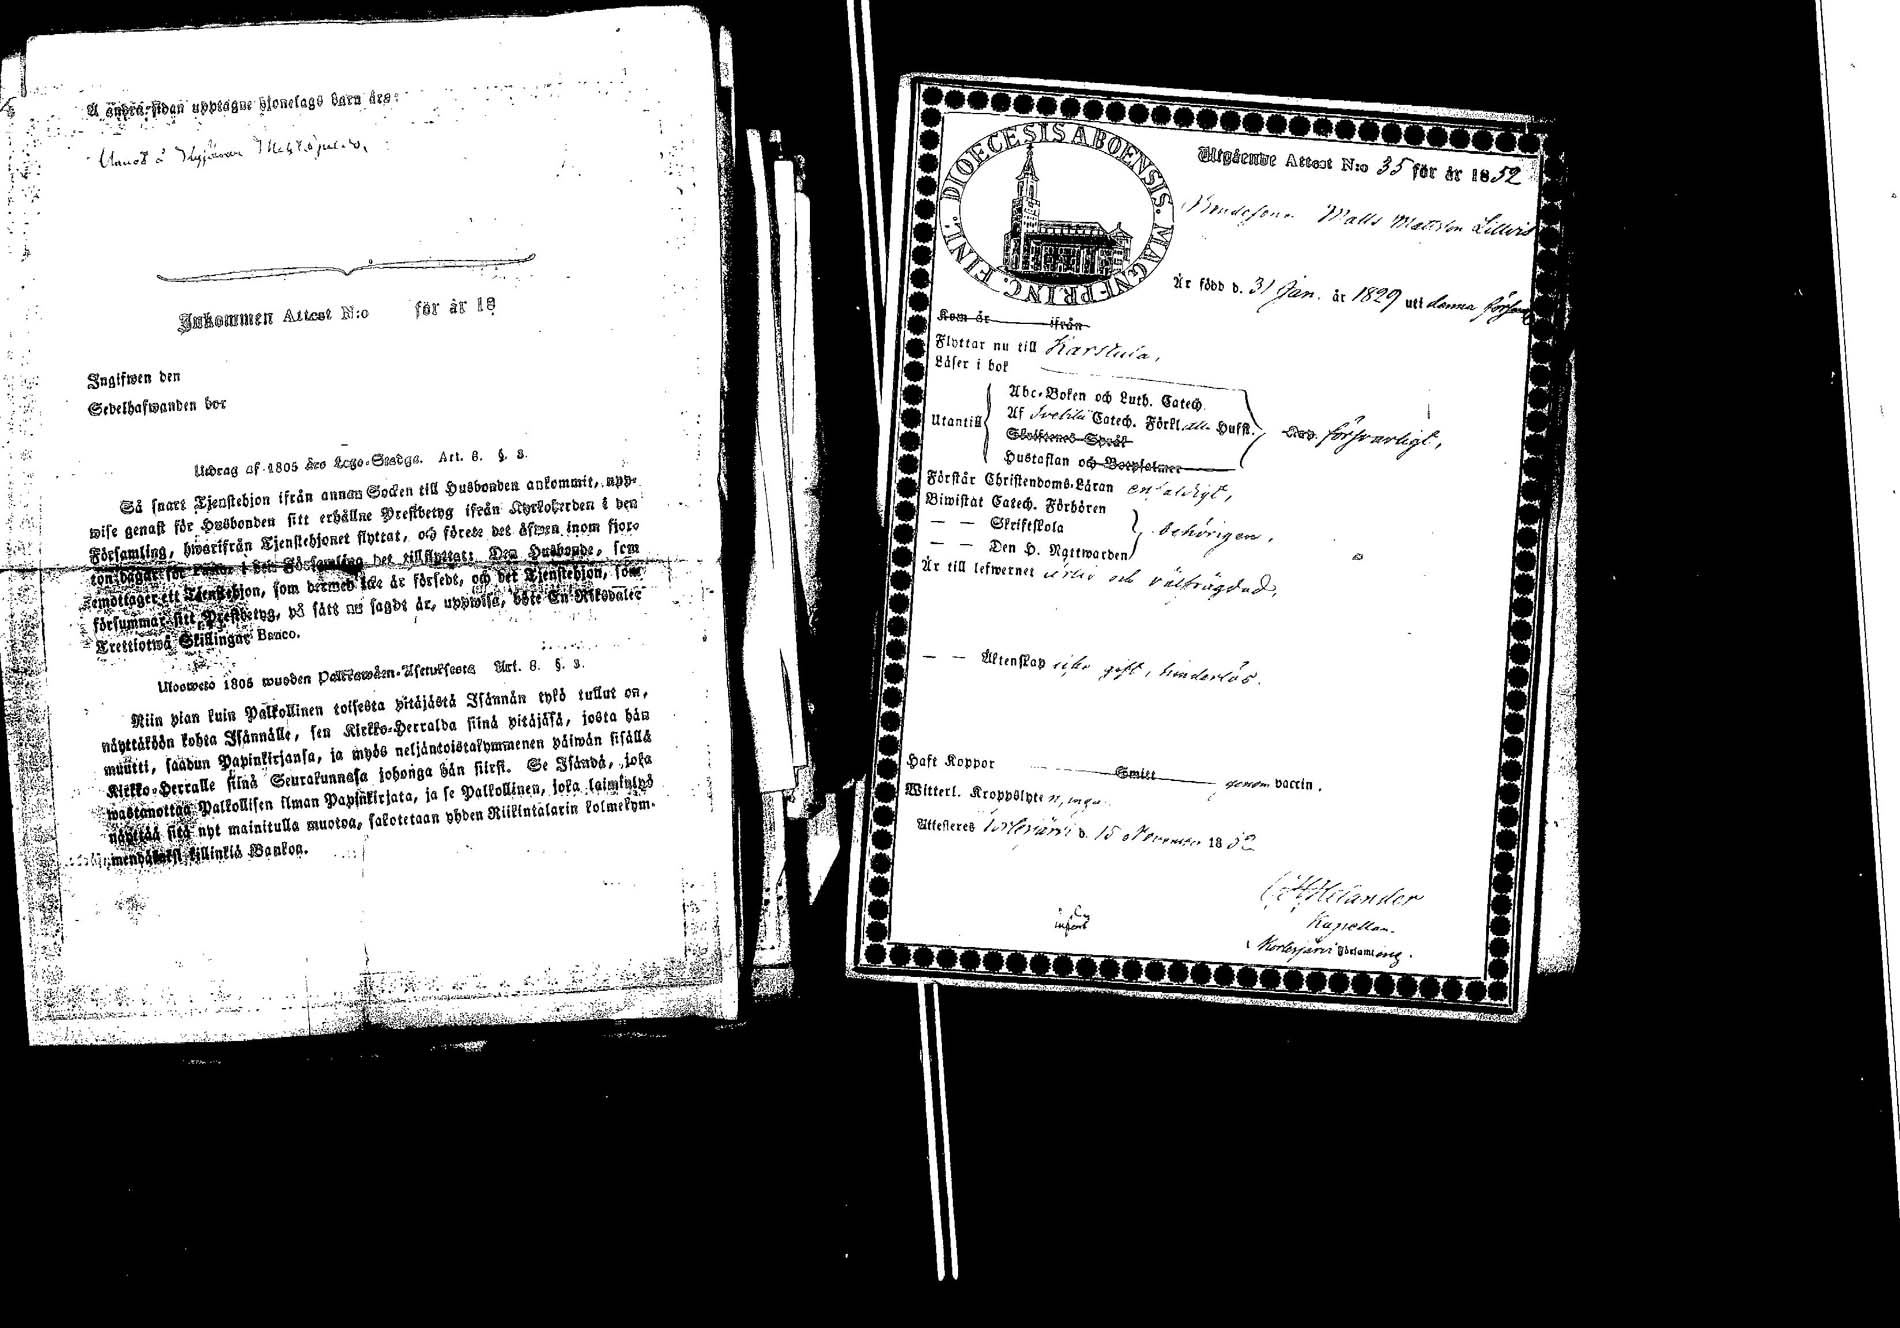 Å andra sidan upptagne hjonelags barn äro:
Inkommen Attest N:o för år 18
Ingifwen den
Sedelhafwanden bor
Utdrag af 1805 års Lego-Stadga. Art. 8. §. 3.
Så snart Tjenstehjon ifrån annan Socken till Husbonden ankommit, upp-
wise genast för Husbonden sitt erhållne Prestbetyg ifrån Kyrkoherden i den
Församling, hwarifrån Tjenstehjonet flyttat, och förete det äfwen inom fjor-
ton dagar för Pastor i den Församling det tillflyttat: Den Husbonde, som
emottager ett Tjenstehjon, som dermed icke är försedt, och det Tjenstehjon, som
försummar sitt Prestbetyg, på sätt nu sagdt är, uppwisa, böte En Riksdaler
Trettiotwå Skillingar Banco.
Ulosweto 1805 wuoden Palkkawäen-Asetuksesta Art. 8. §. 3.
Niin pian kuin Palkollinen toisesta pitäjästä Isännän tykö tullut on,
näyttäköön kohta Isännälle, sen Kirkko-Herralda siinä pitäjäsä, josta hän
muutti, saadun Papinkirjansa, ja myös neljäntoistakymmenen päiwän sisällä
Kirkko-Herralle siinä Seurakunnasa johonga hän siirsi. Se Isändä, joka
wastanottaa Palkollisen ilman Papinkirjata, ja se Palkollinen, joka laiminlyö
näyttää sitä nyt mainitulla muotoa, sakotetaan yhden Riikintalarin kolmekym-
mendäkaksi killinkiä Bankoa.
DIOECESIS ABOENSIS. MAGNI PRINC. FINL.
Utgående Attest N:o 35 för år 1852
Bondesonen Matts Mattson Lillvis
Är född d. 31 Jan. år 1829 uti denna församl
Kom år ifrån
Flyttar nu till Karstula,
Läser i bok
Abc-Boken och Luth. Catech.
Utantill Af Svebilii Catech. Förkl. Hufst. försvarligt,
Skriftenes Språk
Hustaflan och Botpsalmer
Förstår Christendoms-Läran enfaldigt,
Biwistat Catech. Förhören
— — Skriftskola behörigen,
— — Den H. Nattwarden
Är till lefwernet ärlig och välfrägdad,
— — Äktenskap icke gift, hinderlös.
Haft Koppor Smitt genom vaccin.
Witterl. Kroppslyten, inga
Attesteres Kortesjärvi d. 15 November 1852
Helander
Kapellan.
i Kortesjärvi Församling.